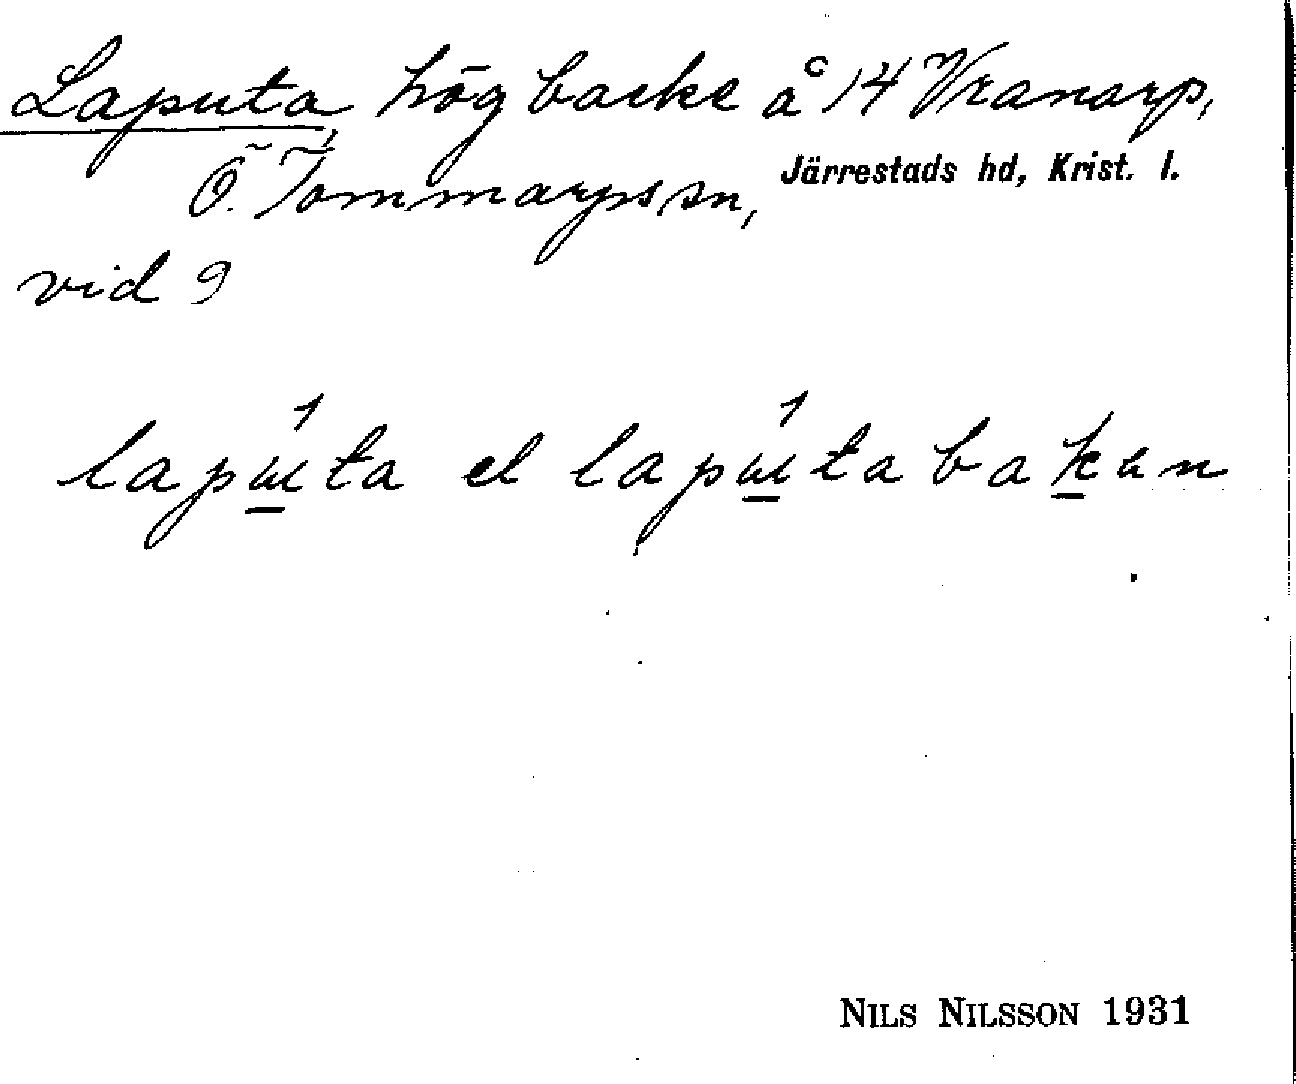 Laputa, hög backe å 14 Vranarp,
Ö. Tommarps sn, Järrestads hd, Krist. l.
vid 9
lapɯ́ta el lapɯ́ta bakɐn
NILS NILSSON 1931